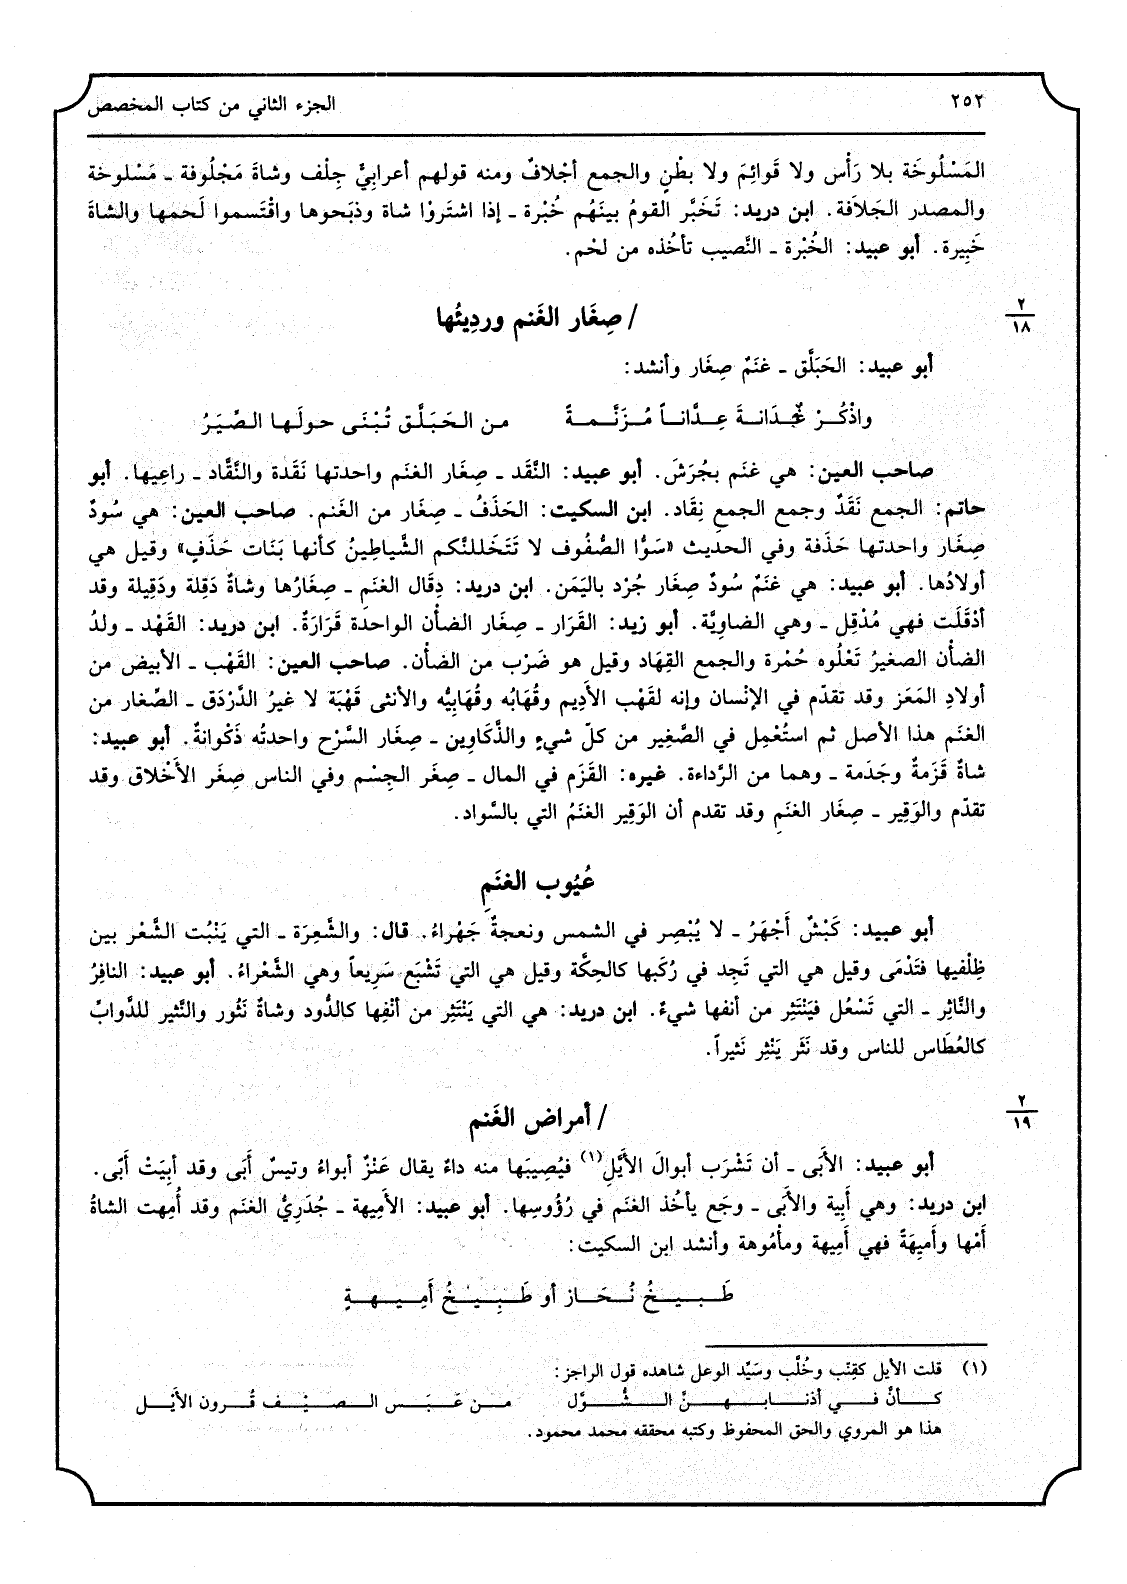 ٢٥٢
الجزء الثاني من كتاب المخصص
المَسْلُوخَة بلا رَأْس ولا قَوائِمَ ولا بطْنٍ والجمع أجْلافٌ ومنه قولهم أعرابِيٌّ جِلْف وشاةَ مَجْلُوفة ـ مَسْلوخة
والمصدر الجَلاَفة. ابن دريد: تَخَبَّر القومُ بينَهُم خُبْرة ـ إذا اشتَروْا شاة وذبَحوها واقْتَسموا لَحمها والشاةَ
خَبِيرة. أبو عبيد: الخُبْرة ـ النَّصيب تأخُذه من لحْم.
٢
١٨
/ صِغَار الغَنم وردِيئُها
أبو عبيد: الحَبَلَّق ـ غنَمٌ صِغَار وأنشد:
واذْكُرْ غُدَانةَ عِدَّاناً مُزَنَّمةً من الحَبَلَّق تُبْنَى حولَها الصِّيَرُ
صاحب العين: هي غنَم بجُرَشَ. أبو عبيد: النَّقَد ـ صِغَار الغنَم واحدتها نَقَدة والنَّقَّاد ـ راعِيها. أبو
حاتم: الجمع نَقَدٌ وجمع الجمعِ نِقَاد. ابن السكيت: الحَذَفُ ـ صِغَار من الغَنم. صاحب العين: هي سُودٌ
صِغَار واحدتها حَذَفة وفي الحديث «سَوُّا الصُّفُوف لا تَتَخَللنَّكم الشَّياطِينُ كأنها بَنَات حَذَفٍ» وقيل هي
أولادُها. أبو عبيد: هي غنَمٌ سُودٌ صِغَار جُرْد باليَمَن. ابن دريد: دِقَال الغنَمِ ـ صِغَارُها وشاةٌ دَقِلة ودَقِيلة وقد
أدْقَلَت فهي مُدْقِل ـ وهي الضاوِيَّة. أبو زيد: القَرَار ـ صِغَار الضأن الواحدة قَرَارَةٌ. ابن دريد: القَهْد ـ ولدُ
الضأن الصغيرُ تَعْلُوه حُمْرة والجمع القِهَاد وقيل هو ضَرْب من الضأن. صاحب العين: القَهْب ـ الأبيض من
أولادِ المَعَز وقد تقدّم في الإنْسان وإنه لقَهْب الأَدِيم وقُهَابُه وقُهَابِيُّه والأنثى قَهْبَة لا غيرُ الدَّرْدَق ـ الصِّغار من
الغنَم هذا الأصل ثم استُعْمِل في الصَّغِير من كلّ شيءٍ والذَّكَاوِين ـ صِغَار السَّرْح واحدتُه ذَكْوانةٌ. أبو عبيد:
شاةٌ قَزَمةٌ وجَدَمة ـ وهما من الرَّداءة. غيره: القَزَم في المال ـ صِغَر الجِسْم وفي الناس صِغَر الأَخْلاق وقد
تقدّم والوَقِير ـ صِغَار الغنَمِ وقد تقدم أن الوَقِير الغنَمُ التي بالسَّواد.
عُيُوب الغنَمِ
أبو عبيد: كَبْشٌ أَجْهَرُ ـ لا يُبْصِر في الشمس ونعجةٌ جَهْراءُ. قال: والشَّعِرَة ـ التي يَنْبُت الشَّعْر بين
ظِلْفيها فتَدْمَى وقيل هي التي تَجِد في رُكَبها كالحِكَّة وقيل هي التي تَشْبَع سَرِيعاً وهي الشَّعْراءُ. أبو عبيد: النافِرُ
والنَّاثِر ـ التي تَسْعُل فيَنْتَثِر من أنفها شيءٌ. ابن دريد: هي التي يَنْتَثِر من أنْفِها كالدُّود وشاةٌ نَثُور والنَّثير للدَّوابِّ
كالعُطَاس للناس وقد نَثَر يَنْثِر نَثيراً.
٢
١٩
/ أمراض الغَنم
أبو عبيد: الأَبَى ـ أن تَشْرَب أبوالَ الأَيَّلِ(١) فيُصِيبَها منه داءٌ يقال عَنْزٌ أبواءُ وتيسٌ أَبَى وقد أبِيَتْ أبًى.
ابن دريد: وهي أَبِية والأَبَى ـ وجَع يأخُذ الغنَم في رُؤوسِها. أبو عبيد: الأمِيهة ـ جُدَرِيُّ الغنَم وقد أُمِهت الشاةُ
أَمْها وأَمِيهَةً فهي أَمِيهة ومأْمُوهة وأنشد ابن السكيت:
طَبيخُ نُحَاز أو طَبِيخُ أَمِيهةٍ
(١) قلت الأيل كقِنّب وخُلَّب وسَيِّد الوعل شاهده قول الراجز:
كأنَّ في أذنابهنَّ الشُّوَّل من عَبَس الصيْف قُرون الأيَّل
هذا هو المروي والحق المحفوظ وكتبه محققه محمد محمود.